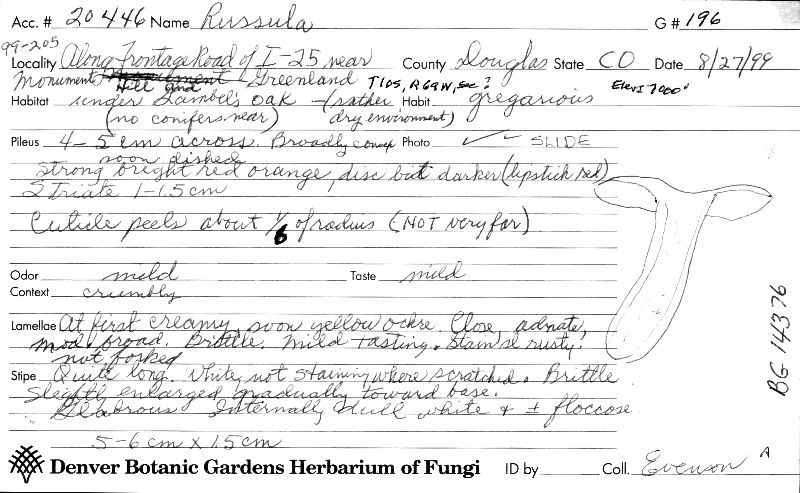 Acc. # 20446 Name Russula G # 196
99-205
Locality Along Frontage Road of I-25 near County Douglas State CO Date 8/27/99
Monument Hill and Greenland T10S, R69W, Sc? Elev± 7000'
Habitat under Gambel's oak - (rather Habit gregarious
(no conifers near) dry environment)
Pileus 4-5 cm across. Broadly convex Photo ✓ ✓ SLIDE
soon dished
Strong bright red orange, disc bit darker (lipstick red)
Striate 1-1.5 cm
Cuticle peels about 1/6 of radius (NOT very far)
Odor mild Taste mild
Context crumbly
Lamellae At first creamy, soon yellow ochre. Close, adnate,
mod. broad. Brittle. Mild tasting. Stain sl rusty.
not forked
Stipe Quite long. White, not staining where scratched. Brittle
Slightly enlarged gradually toward base.
Glabrous Internally dull white & ± floccose
5-6 cm x 1.5 cm
BG 14376
Denver Botanic Gardens Herbarium of Fungi ID by Coll. Evenson A